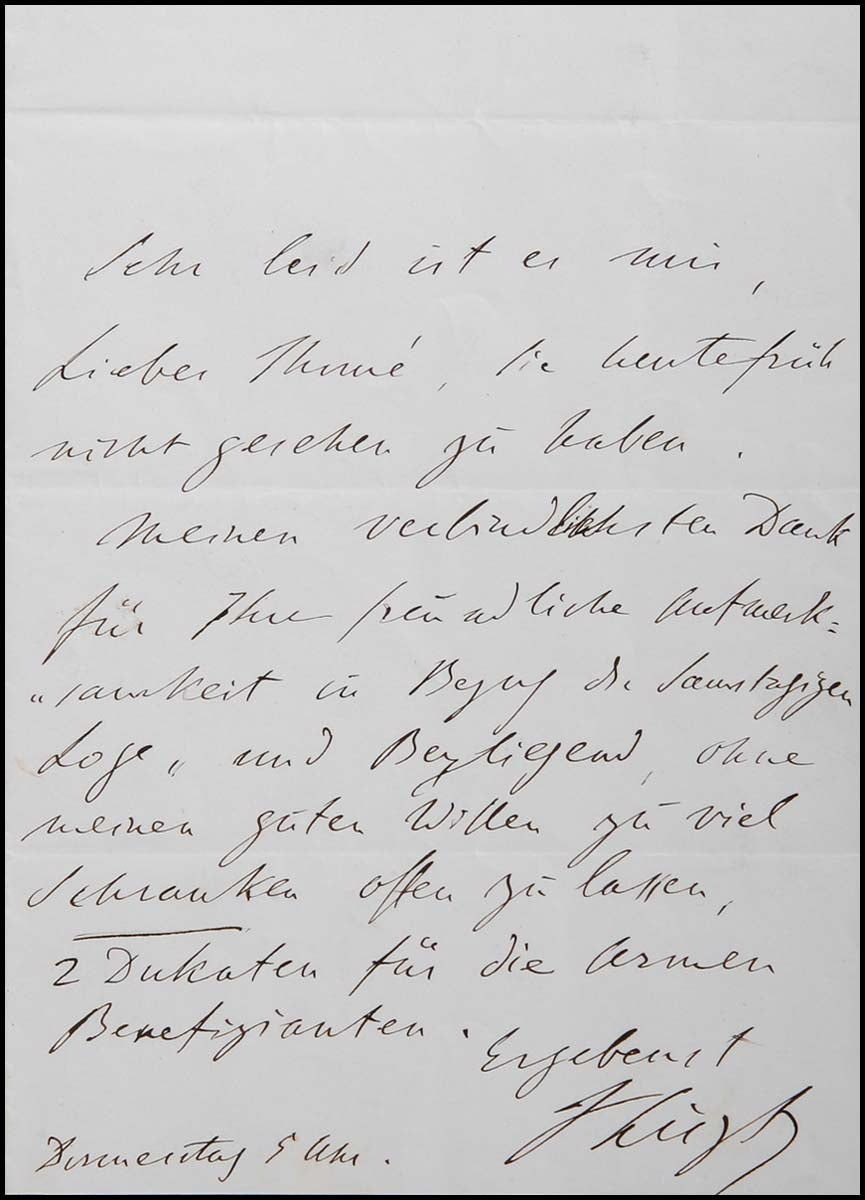 Sehr leid ist es mir,
Lieber Thomé, Sie heutefrüh
nicht gesehen zu haben.
Meinen verbindlichsten Dank
für Ihre freundliche Aufmerk=
"samkeit in Bezug der Samstagigen
Loge, und Beyliegend, ohne
meinen guten Willen zu viel
Schranken offen zu lassen,
2 Dukaten für die Armen
Benefizianten.
Ergebenst
FLiszt
Donnerstag 5 Uhr.